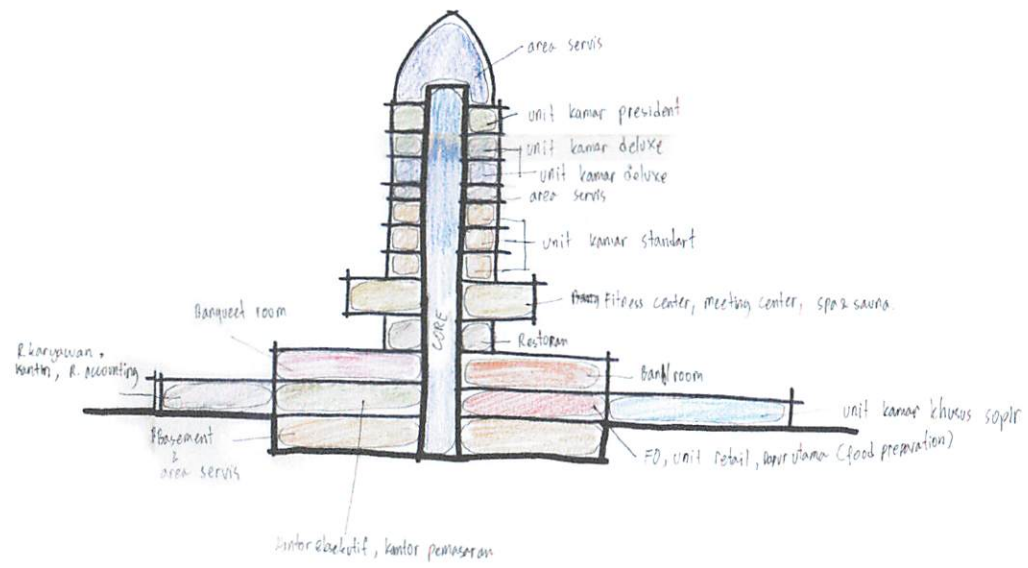 area servis
unit kamar president
unit kamar deluxe
unit kamar deluxe
area servis
unit kamar standart
Fitness center, meeting center, spa & sauna
Banqueet room
CORE
Restoran
R.karyawan,
kantin, R. accounting
room
unit kamar khusus sopir
Basement
&
area servis
FO, unit retail, Dapur utama (food preparation)
kantor eksekutif, kantor pemasaran